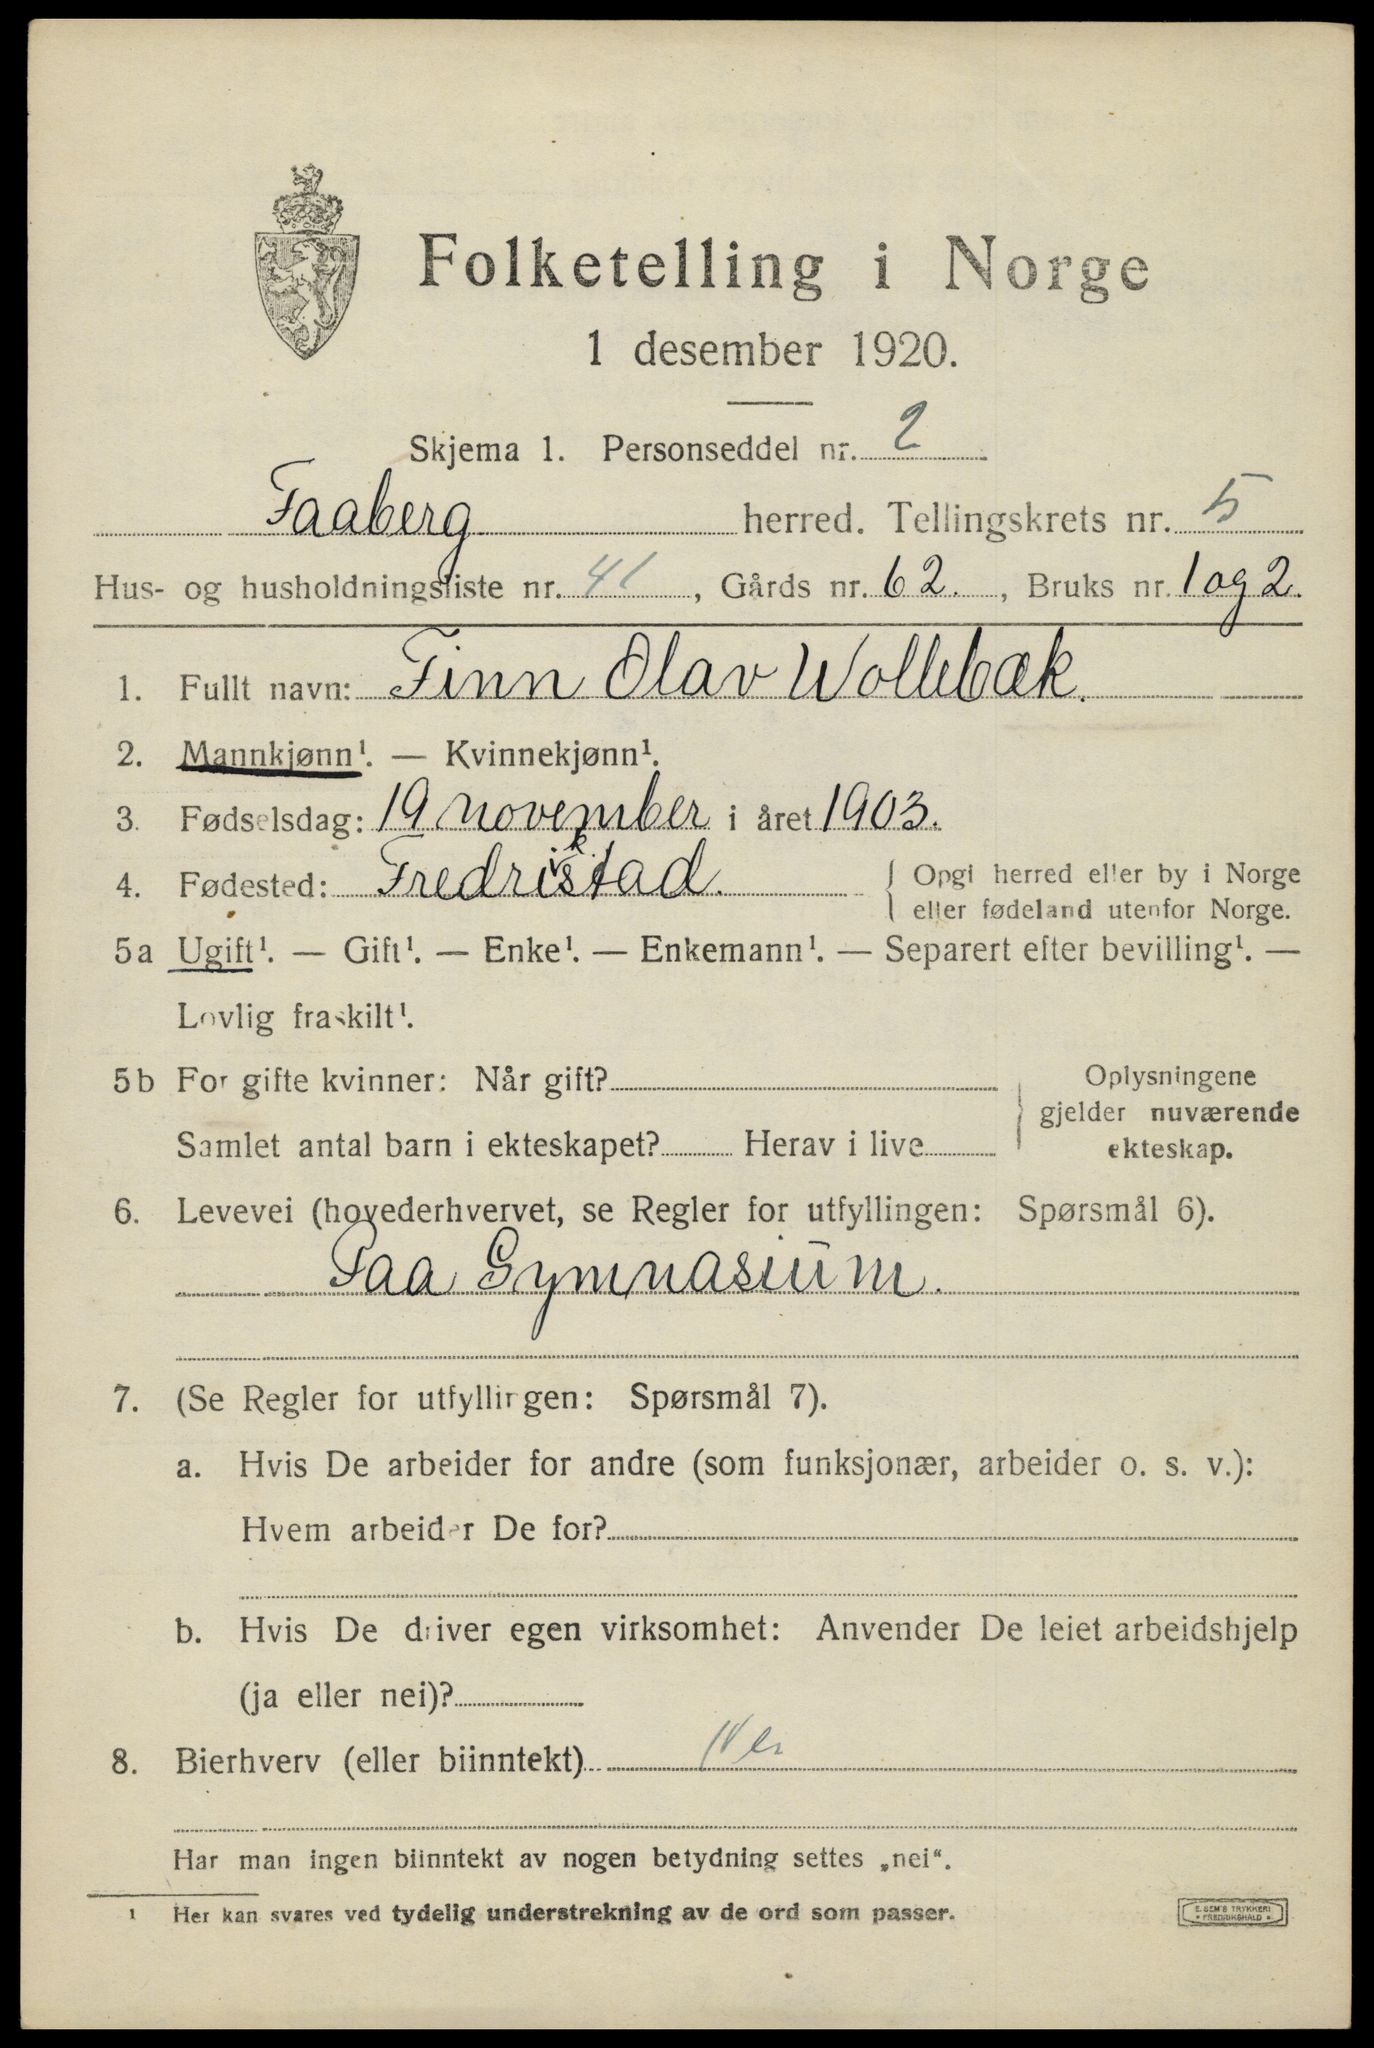 Folketelling i Norge
1 desember 1920.
Skjema 1. Personseddel nr. 2
Faaberg herred. Tellingskrets nr. 5
Hus- og husholdningsliste nr. 41, Gårds nr. 62., Bruks nr. 1 og 2.
1. Fullt navn: Finn Olav Wollebæk.
2. Mannkjønn¹. — Kvinnekjønn¹.
3. Fødselsdag: 19 november i året 1903.
4. Fødested: Fredrikstad. { Opgi herred eller by i Norge
eller fødeland utenfor Norge.
5a Ugift¹. — Gift¹. — Enke¹. — Enkemann¹. — Separert efter bevilling¹. —
Lovlig fraskilt¹.
5b For gifte kvinner: Når gift? Oplysningene
gjelder nuværende
Samlet antal barn i ekteskapet? Herav i live ekteskap.
6. Levevei (hovederhvervet, se Regler for utfyllingen: Spørsmål 6).
Paa Gymnasium.
7. (Se Regler for utfyllingen: Spørsmål 7).
a. Hvis De arbeider for andre (som funksjonær, arbeider o. s. v.):
Hvem arbeider De for?
b. Hvis De driver egen virksomhet: Anvender De leiet arbeidshjelp
(ja eller nei)?
8. Bierhverv (eller biinntekt) Nei
Har man ingen biinntekt av nogen betydning settes „nei“.
¹ Her kan svares ved tydelig understrekning av de ord som passer.
E. SEM'S TRYKKERI
• FREDRIKSHALD •